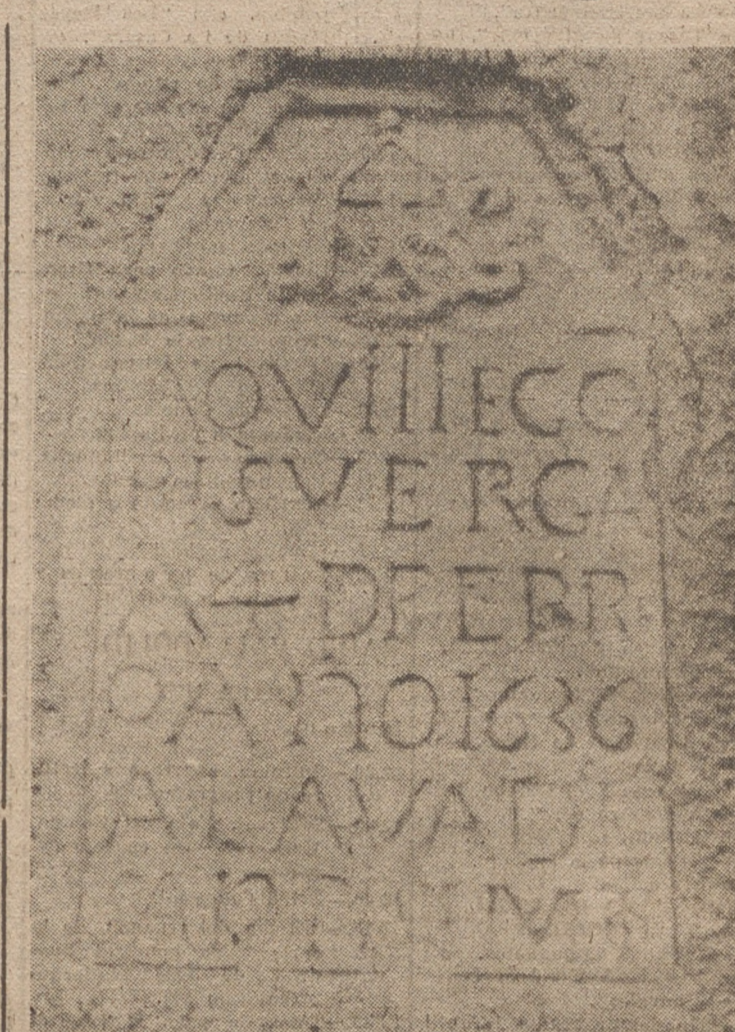 AQVIIIECC
PISVERGA
A 4 DFEBR
OANO1636
ALAVADE